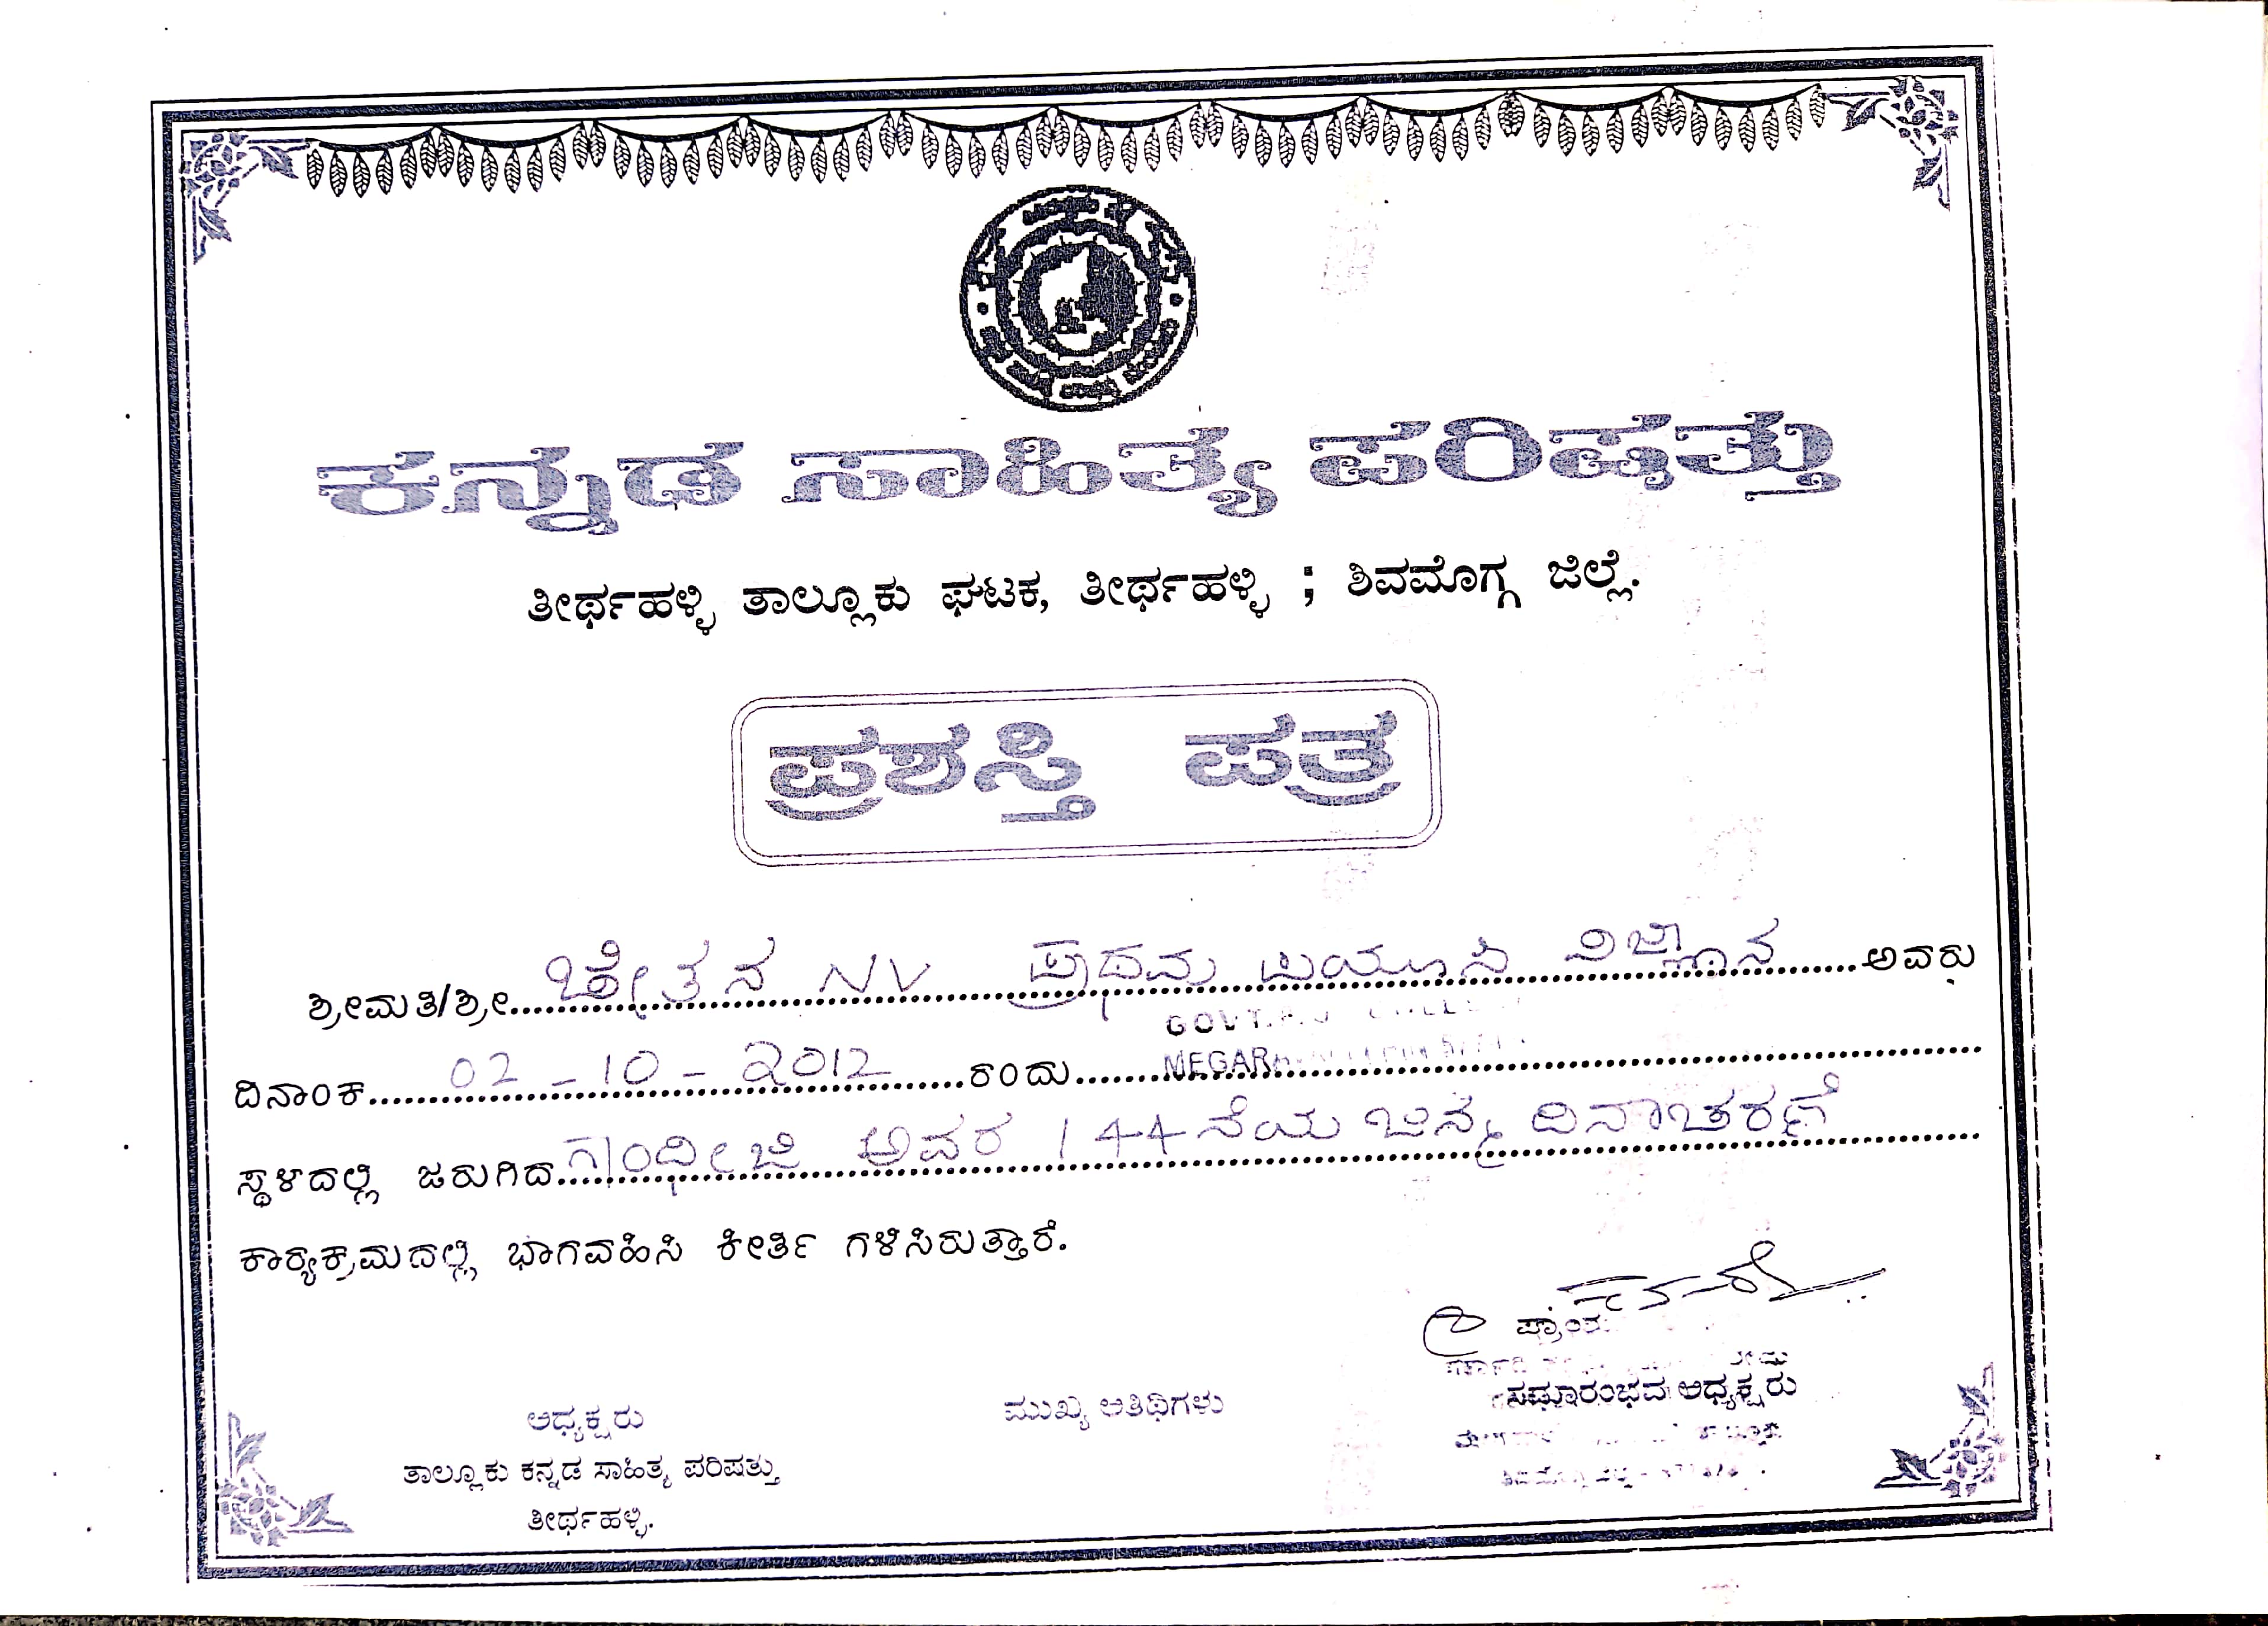 ಕನ್ನಡ ಸಾಹಿತ್ಯ ಪರಿಷತ್ತು
ತೀರ್ಥಹಳ್ಳಿ ತಾಲ್ಲೂಕು ಘಟಕ, ತೀರ್ಥಹಳ್ಳಿ ; ಶಿವಮೊಗ್ಗ ಜಿಲ್ಲೆ.
ಪ್ರಶಸ್ತಿ ಪತ್ರ
ಶ್ರೀಮತಿ/ಶ್ರೀ ಚೇತನ NV ಪ್ರಥಮ ಪಿಯುಸಿ ವಿಜ್ಞಾನ ಅವರು
GOVT.
ದಿನಾಂಕ 02-10-2012 ರಂದು
ಸ್ಥಳದಲ್ಲಿ ಜರುಗಿದ ಗಾಂಧೀಜಿ ಅವರ 144ನೆಯ ಜನ್ಮ ದಿನಾಚರಣೆ
ಕಾರ್ಯಕ್ರಮದಲ್ಲಿ ಭಾಗವಹಿಸಿ ಕೀರ್ತಿ ಗಳಿಸಿರುತ್ತಾರೆ.
ಅಧ್ಯಕ್ಷರು
ತಾಲ್ಲೂಕು ಕನ್ನಡ ಸಾಹಿತ್ಯ ಪರಿಷತ್ತು
ತೀರ್ಥಹಳ್ಳಿ.
ಮುಖ್ಯ ಅತಿಥಿಗಳು
ಸಮಾರಂಭದ ಅಧ್ಯಕ್ಷರು